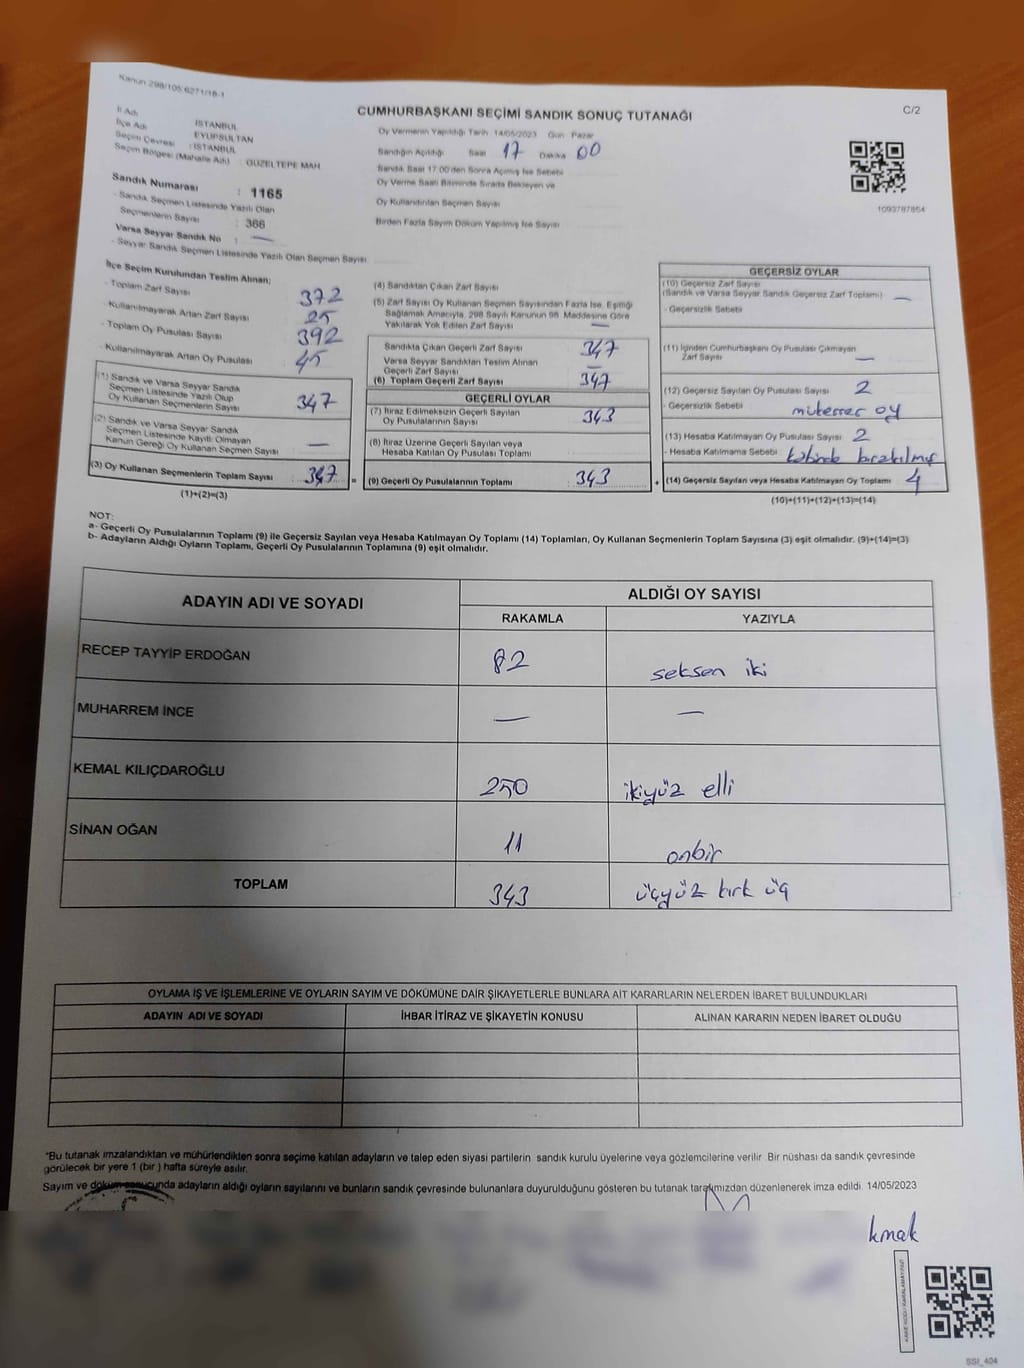 Kanun 298/105 6271/18-1
CUMHURBAŞKANI SEÇİMİ SANDIK SONUÇ TUTANAĞI
C/2
İl Adı : İSTANBUL
İlçe Adı : EYÜPSULTAN
Seçim Çevresi : İSTANBUL
Seçim Bölgesi (Mahalle Adı) : GÜZELTEPE MAH.
Sandık Numarası : 1165
- Sandık Seçmen Listesinde Yazılı Olan
Seçmenlerin Sayısı : 366
Varsa Seyyar Sandık No : —
- Seyyar Sandık Seçmen Listesinde Yazılı Olan Seçmen Sayısı
Oy Vermenin Yapıldığı Tarih 14/05/2023 Gün Pazar
Sandığın Açıldığı Saat 17 Dakika 00
Sandık Saat 17.00'den Sonra Açılmış İse Sebebi
Oy Verme Saati Bitiminde Sırada Bekleyen ve
Oy Kullandırılan Seçmen Sayısı
Birden Fazla Sayım Döküm Yapılmış İse Sayısı
1093787854
İlçe Seçim Kurulundan Teslim Alınan;
- Toplam Zarf Sayısı 372
- Kullanılmayarak Artan Zarf Sayısı 25
- Toplam Oy Pusulası Sayısı 392
- Kullanılmayarak Artan Oy Pusulası 45
(1) Sandık ve Varsa Seyyar Sandık
Seçmen Listesinde Yazılı Olup
Oy Kullanan Seçmenlerin Sayısı 347
(2) Sandık ve Varsa Seyyar Sandık
Seçmen Listesinde Kayıtlı Olmayan
Kanun Gereği Oy Kullanan Seçmen Sayısı —
(3) Oy Kullanan Seçmenlerin Toplam Sayısı : 347 =
(1)+(2)=(3)
(4) Sandıktan Çıkan Zarf Sayısı
(5) Zarf Sayısı Oy Kullanan Seçmen Sayısından Fazla İse, Eşitliği
Sağlamak Amacıyla, 298 Sayılı Kanunun 98. Maddesine Göre
Yakılarak Yok Edilen Zarf Sayısı —
Sandıkta Çıkan Geçerli Zarf Sayısı 347
Varsa Seyyar Sandıktan Teslim Alınan
Geçerli Zarf Sayısı —
(6) Toplam Geçerli Zarf Sayısı 347
GEÇERLİ OYLAR
(7) İtiraz Edilmeksizin Geçerli Sayılan
Oy Pusulalarının Sayısı 343
(8) İtiraz Üzerine Geçerli Sayılan veya
Hesaba Katılan Oy Pusulası Toplamı
(9) Geçerli Oy Pusulalarının Toplamı : 343 +
GEÇERSİZ OYLAR
(10) Geçersiz Zarf Sayısı
(Sandık ve Varsa Seyyar Sandık Geçersiz Zarf Toplamı) —
- Geçersizlik Sebebi
(11) İçinden Cumhurbaşkanı Oy Pusulası Çıkmayan
Zarf Sayısı —
(12) Geçersiz Sayılan Oy Pusulası Sayısı 2
- Geçersizlik Sebebi mükerrer oy
(13) Hesaba Katılmayan Oy Pusulası Sayısı 2
- Hesaba Katılmama Sebebi kabinde bırakılmış
(14) Geçersiz Sayılan veya Hesaba Katılmayan Oy Toplamı 4
(10)+(11)+(12)+(13)=(14)
NOT:
a- Geçerli Oy Pusulalarının Toplamı (9) ile Geçersiz Sayılan veya Hesaba Katılmayan Oy Toplamı (14) Toplamları, Oy Kullanan Seçmenlerin Toplam Sayısına (3) eşit olmalıdır. (9)+(14)=(3)
b- Adayların Aldığı Oyların Toplamı, Geçerli Oy Pusulalarının Toplamına (9) eşit olmalıdır.
ADAYIN ADI VE SOYADI
ALDIĞI OY SAYISI
RAKAMLA YAZIYLA
RECEP TAYYİP ERDOĞAN 82 seksen iki
MUHARREM İNCE — —
KEMAL KILIÇDAROĞLU 250 ikiyüz elli
SİNAN OĞAN 11 onbir
TOPLAM 343 üçyüz kırk üç
OYLAMA İŞ VE İŞLEMLERİNE VE OYLARIN SAYIM VE DÖKÜMÜNE DAİR ŞİKAYETLERLE BUNLARA AİT KARARLARIN NELERDEN İBARET BULUNDUKLARI
ADAYIN ADI VE SOYADI İHBAR İTİRAZ VE ŞİKAYETİN KONUSU ALINAN KARARIN NEDEN İBARET OLDUĞU
*Bu tutanak imzalandıktan ve mühürlendikten sonra seçime katılan adayların ve talep eden siyasi partilerin sandık kurulu üyelerine veya gözlemcilerine verilir. Bir nüshası da sandık çevresinde
görülecek bir yere 1 (bir) hafta süreyle asılır.
Sayım ve döküm sonucunda adayların aldığı oyların sayılarını ve bunların sandık çevresinde bulunanlara duyurulduğunu gösteren bu tutanak tarafımızdan düzenlenerek imza edildi. 14/05/2023
SSI_404